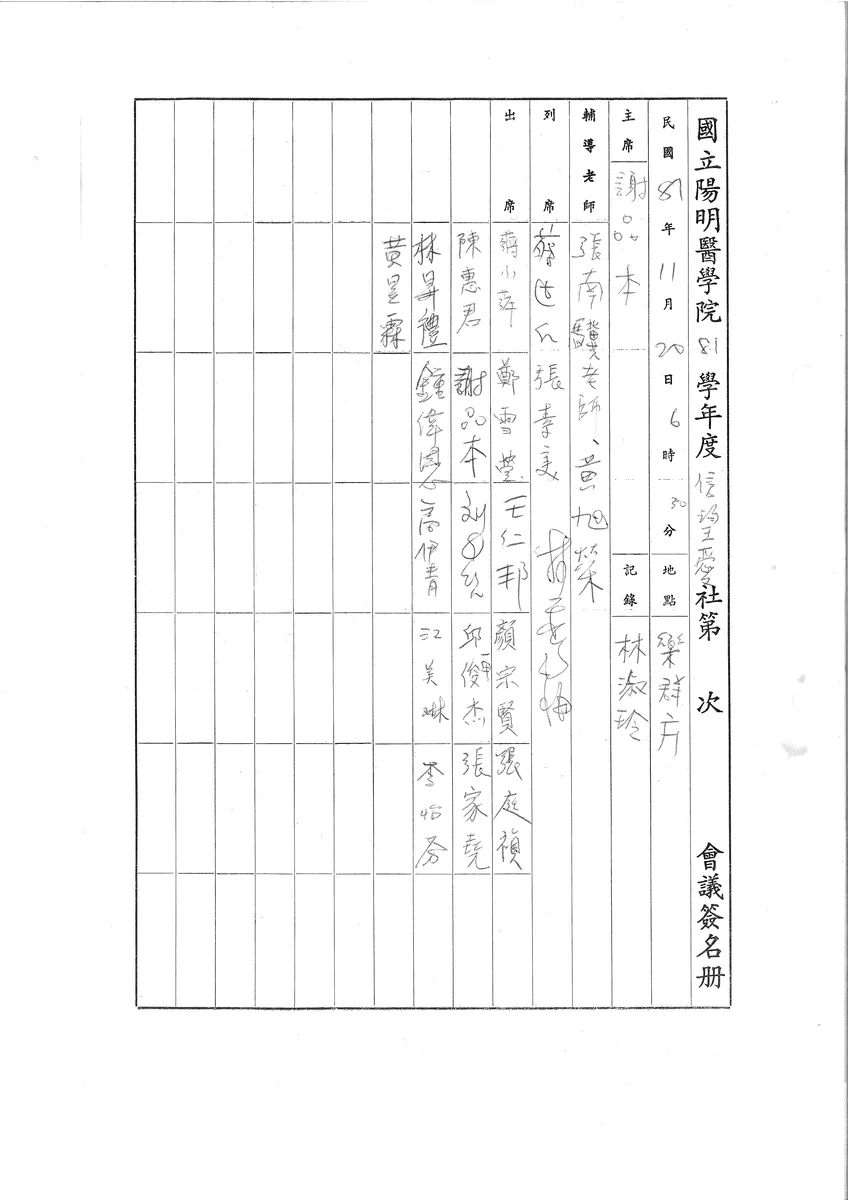 國立陽明醫學院81學年度信望愛社第 次 會議簽名册
民國81年11月20日6時30分 地點 樂群廳
主席 謝品本 記錄 林淑玲
輔導老師 張南驥老師、黃旭榮
列席 張素美
出席 蔣小萍 鄭雪瑩 王仁邦 顏宗賢 張庭禎
陳惠君 謝品本 邱俊杰 張家堯
林昇禮 鍾偉恩 高伊青 江美琳 李怡芬
黃昱霖